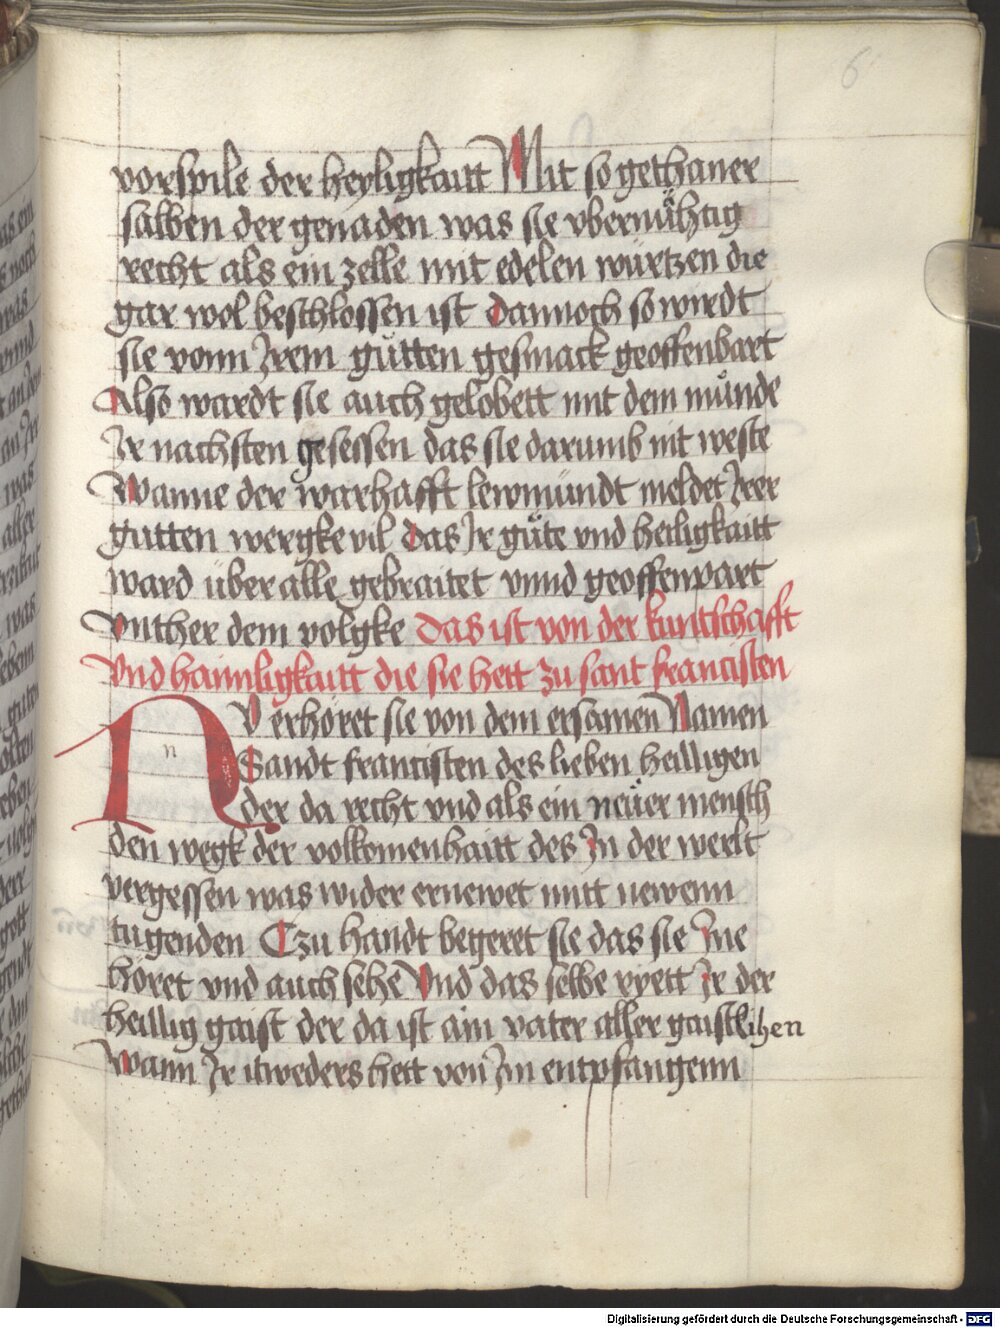 6
vorspile der heyligkaitt Mit so gethaner
salben der genaden was sie vbernühtig
recht als ein zelle mit edelen würtzen die
gar wol beschlossen ist dannoch so wirdt
sie vonn Jrem gütten gesmack geoffenbart
Also wardt sie auch gelobett mit dem münde
Jr nachsten gesessen das sie darumb nit weste
Wanne der warhafft lewmündt meldet Jrer
gutten wergke vil das Jr güte vnd heiligkaitt
ward über alle gebraitet vnnd geoffenwart
vnther dem volgke das ist von der kuntschafft
vnd haimligkaitt die sie hett zu sant francisten
n
NV erhoret sie von dem ersamen Namen
Sandt francisten des lieben heilligen
der da recht vnd als ein neüer mensch
den wegk der volkomenhaitt des Jn der werlt
vergessen was wider ernewet mitt newenn
tugenden Czu handt begeret sie das sie Jne
horet vnd auch sehe Vnd das selbe ryett Jr der
heillig gaist der da ist ain vater aller gaistlihen
Wann Jr itweders hett von Jm entpfangenn
Digitalisierung gefördert durch die Deutsche Forschungsgemeinschaft - DFG